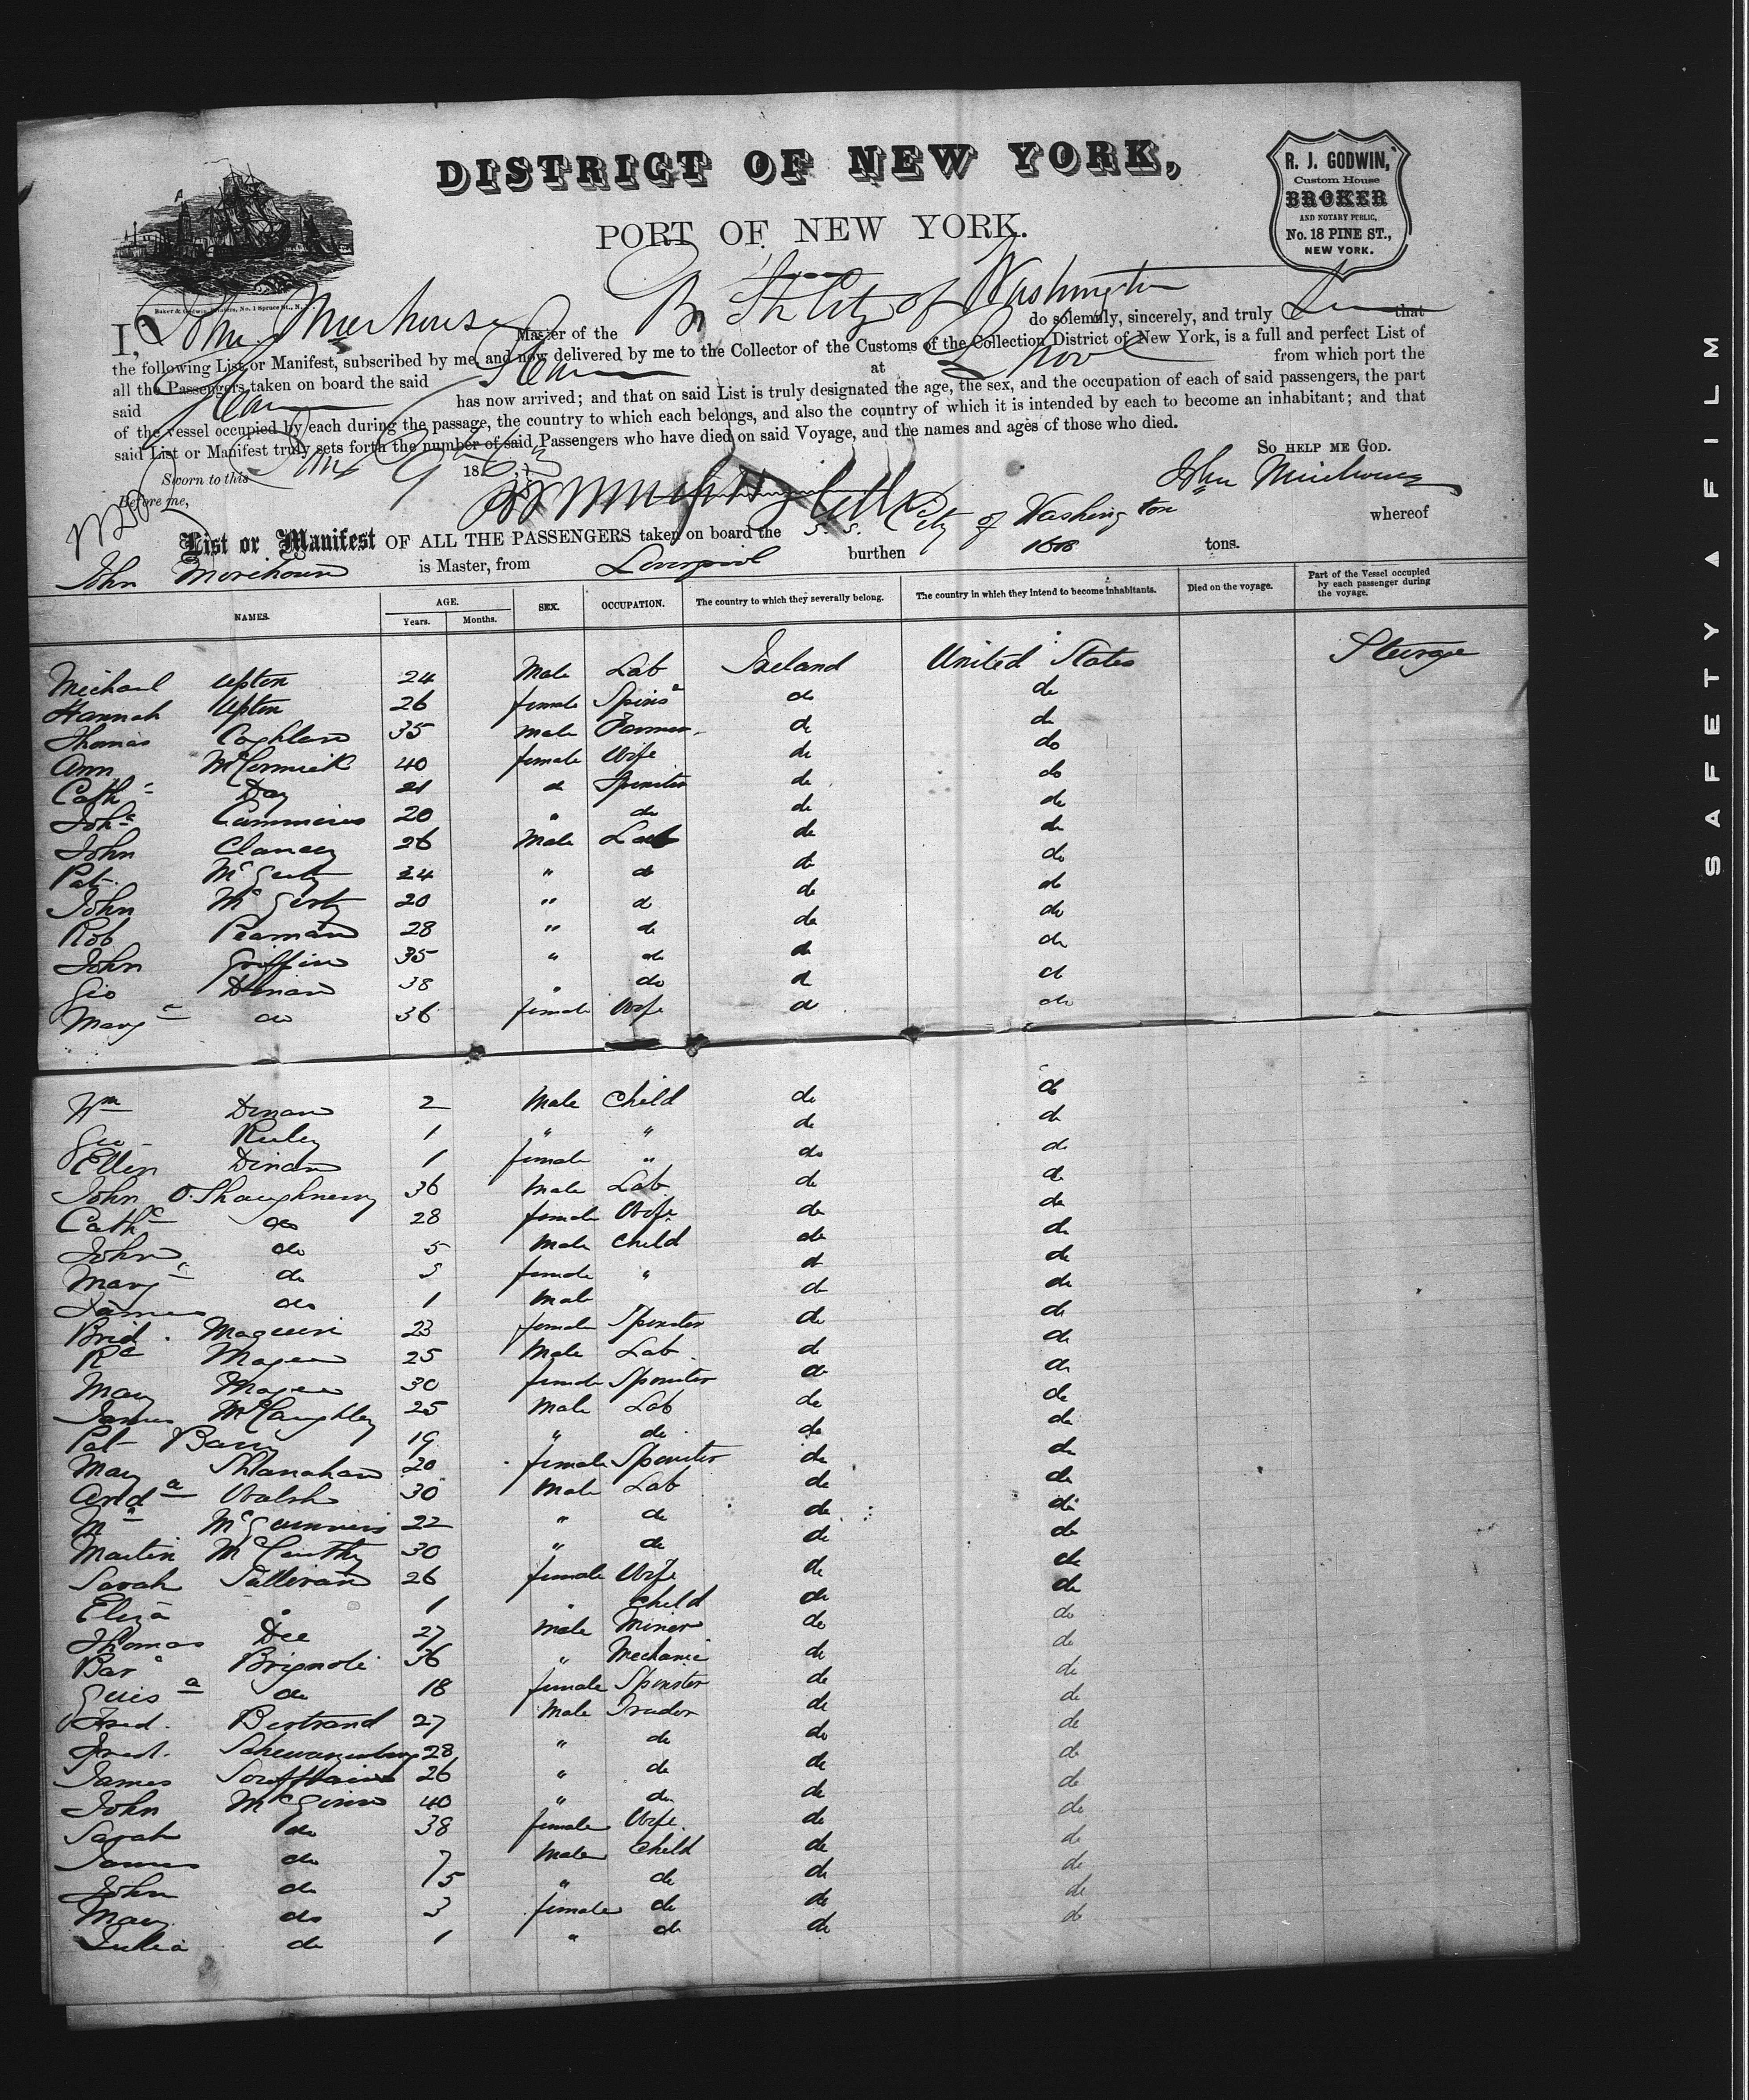 DISTRICT OF NEW YORK,
PORT OF NEW YORK.
R. J. GODWIN,
Custom House
BROKER
AND NOTARY PUBLIC,
No. 18 PINE ST.,
NEW YORK.
Baker & Godwin, Printers, No. 1 Spruce St., N.Y.
I, John Master of the Br City of Washington do solemnly, sincerely, and truly that
the following List or Manifest, subscribed by me, and now delivered by me to the Collector of the Customs of the Collection District of New York, is a full and perfect List of
all the Passengers taken on board the said at from which port the
said has now arrived; and that on said List is truly designated the age, the sex, and the occupation of each of said passengers, the part
of the vessel occupied by each during the passage, the country to which each belongs, and also the country of which it is intended by each to become an inhabitant; and that
said List or Manifest truly sets forth the number of said Passengers who have died on said Voyage, and the names and ages of those who died.
SO HELP ME GOD.
Sworn to this 9 186
Before me,
John
List or Manifest OF ALL THE PASSENGERS taken on board the S. S. City of Washington whereof
John Morehouse is Master, from Liverpool burthen tons.
NAMES. AGE. Years. Months. SEX. OCCUPATION. The country to which they severally belong. The country in which they intend to become inhabitants. Died on the voyage. Part of the Vessel occupied by each passenger during the voyage.
Michael Upton 24 Male Lab Ireland United States Steerage
Hannah Upton 26 female Spinsr do do
Thomas Coghlan 35 male Farmer do do
Ann McCormick 40 female Wife do do
Cathe Day 21 do Spinster do do
Johe Cummins 20 " do do do
John Clancy 26 Male Lab do do
Pat McGerty 24 " do do do
John McGerty 20 " do do do
Rob 28 " do do do
John Griffin 35 " do do do
Geo Dinan 38 " do do do
Marge do 36 female Wife do do
Wm Dinan 2 Male Child do do
Geo 1 " " do do
Ellen Dinan 1 female " do do
John O'Shaughnessy 36 Male Lab do do
Cathe do 28 female Wife do do
John do 5 Male Child do do
Marge do 3 female " do do
James do 1 Male do do
Brid. Maguire 23 female Spinster do do
Rd Magee 25 Male Lab do do
Mary Magee 30 female Spinster do do
James McCaughley 25 Male Lab do do
Pat Barry 19 " do do do
Mary Shanahan 20 female Spinster do do
Andw Walsh 30 Male Lab do do
Mm McGuinnis 22 " do do do
Martin McCarthy 30 " do do do
Sarah Sullivan 26 female Wife do do
Eliza " 1 " Child do do
Thomas Dee 27 Male Miner do do
Bar Brignole 36 " Mechanic do do
do 18 female Spinster do do
Fred. Bertrand 27 Male Trader do do
Fred. 28 " do do do
James 26 " do do do
John McGinn 40 " do do do
Sarah do 38 female Wife do do
James do 7 Male Child do do
John do 5 " do do do
Mary do 3 female do do do
Julia do 1 " do do do
SAFETY ▲ FILM